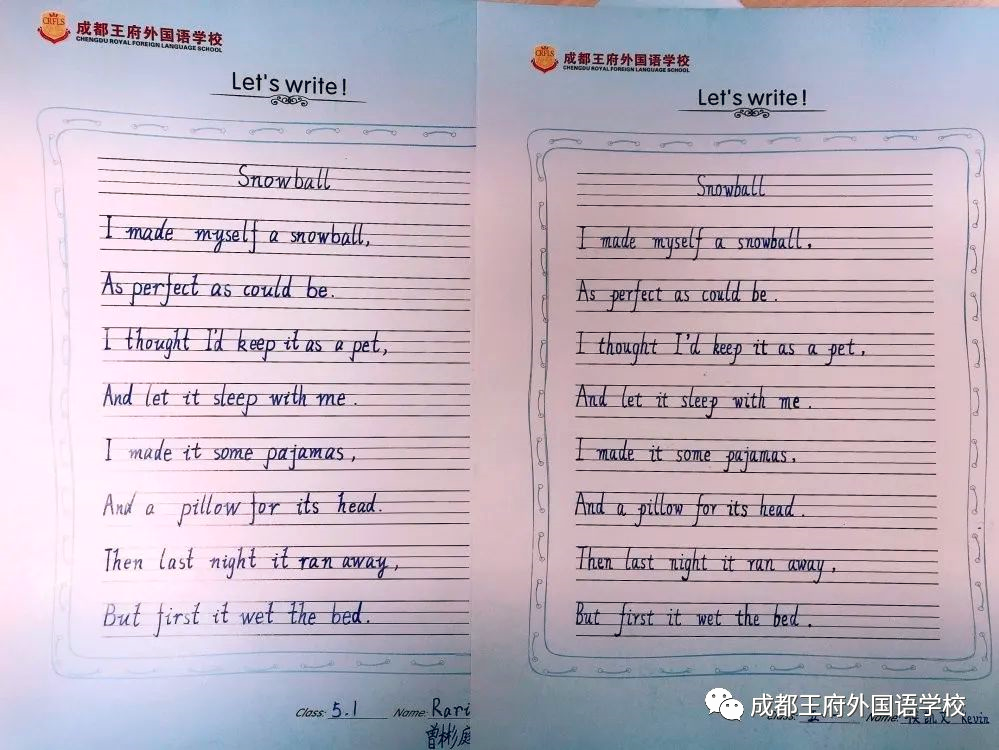 成都王府外国语学校
CHENGDU ROYAL FOREIGN LANGUAGE SCHOOL
Let's write!
Snowball
I made myself a snowball,
As perfect as could be.
I thought I'd keep it as a pet,
And let it sleep with me.
I made it some pajamas,
And a pillow for its head.
Then last night it ran away,
But first it wet the bed.
Class: 5.1 Name: Rari
曾彬庭
成都王府外国语学校
CHENGDU ROYAL FOREIGN LANGUAGE SCHOOL
Let's write!
Snowball
I made myself a snowball.
As perfect as could be.
I thought I'd keep it as a pet,
And let it sleep with me.
I made it some pajamas,
And a pillow for its head.
Then last night it ran away,
But first it wet the bed.
Class: Name: Kevin
成都王府外国语学校